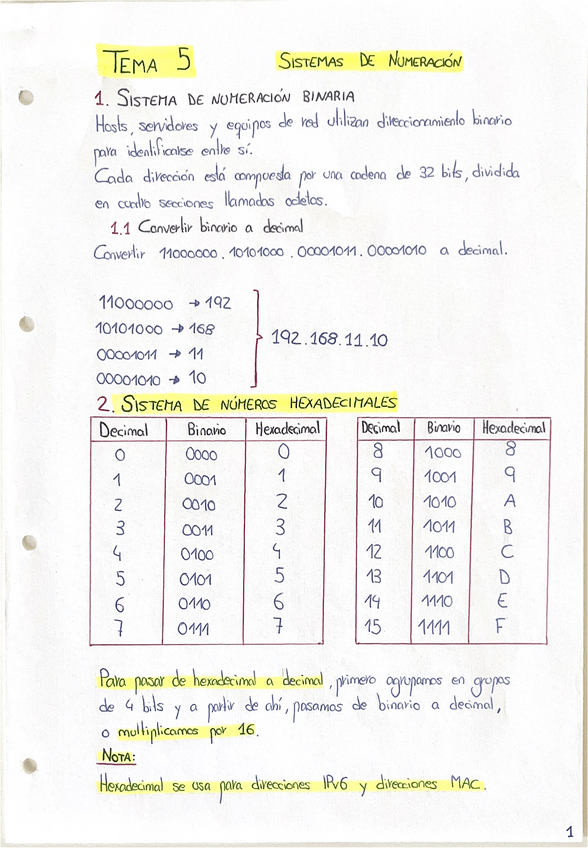 TEMA 5 SISTEMAS DE NUMERACIÓN
1. SISTEMA DE NUMERACIÓN BINARIA
Hosts, servidores y equipos de red utilizan direccionamiento binario
para identificarse entre sí.
Cada dirección está compuesta por una cadena de 32 bits, dividida
en cuatro secciones llamadas octetos.
1.1 Convertir binario a decimal
Convertir 11000000.10101000.00001011.00001010 a decimal.
11000000 → 192
10101000 → 168
00001011 → 11
00001010 → 10
192.168.11.10
2. SISTEMA DE NÚMEROS HEXADECIMALES
Decimal Binario Hexadecimal
0 0000 0
1 0001 1
2 0010 2
3 0011 3
4 0100 4
5 0101 5
6 0110 6
7 0111 7
Decimal Binario Hexadecimal
8 1000 8
9 1001 9
10 1010 A
11 1011 B
12 1100 C
13 1101 D
14 1110 E
15 1111 F
Para pasar de hexadecimal a decimal, primero agrupamos en grupos
de 4 bits y a partir de ahí, pasamos de binario a decimal,
o multiplicamos por 16.
NOTA:
Hexadecimal se usa para direcciones IPv6 y direcciones MAC.
1